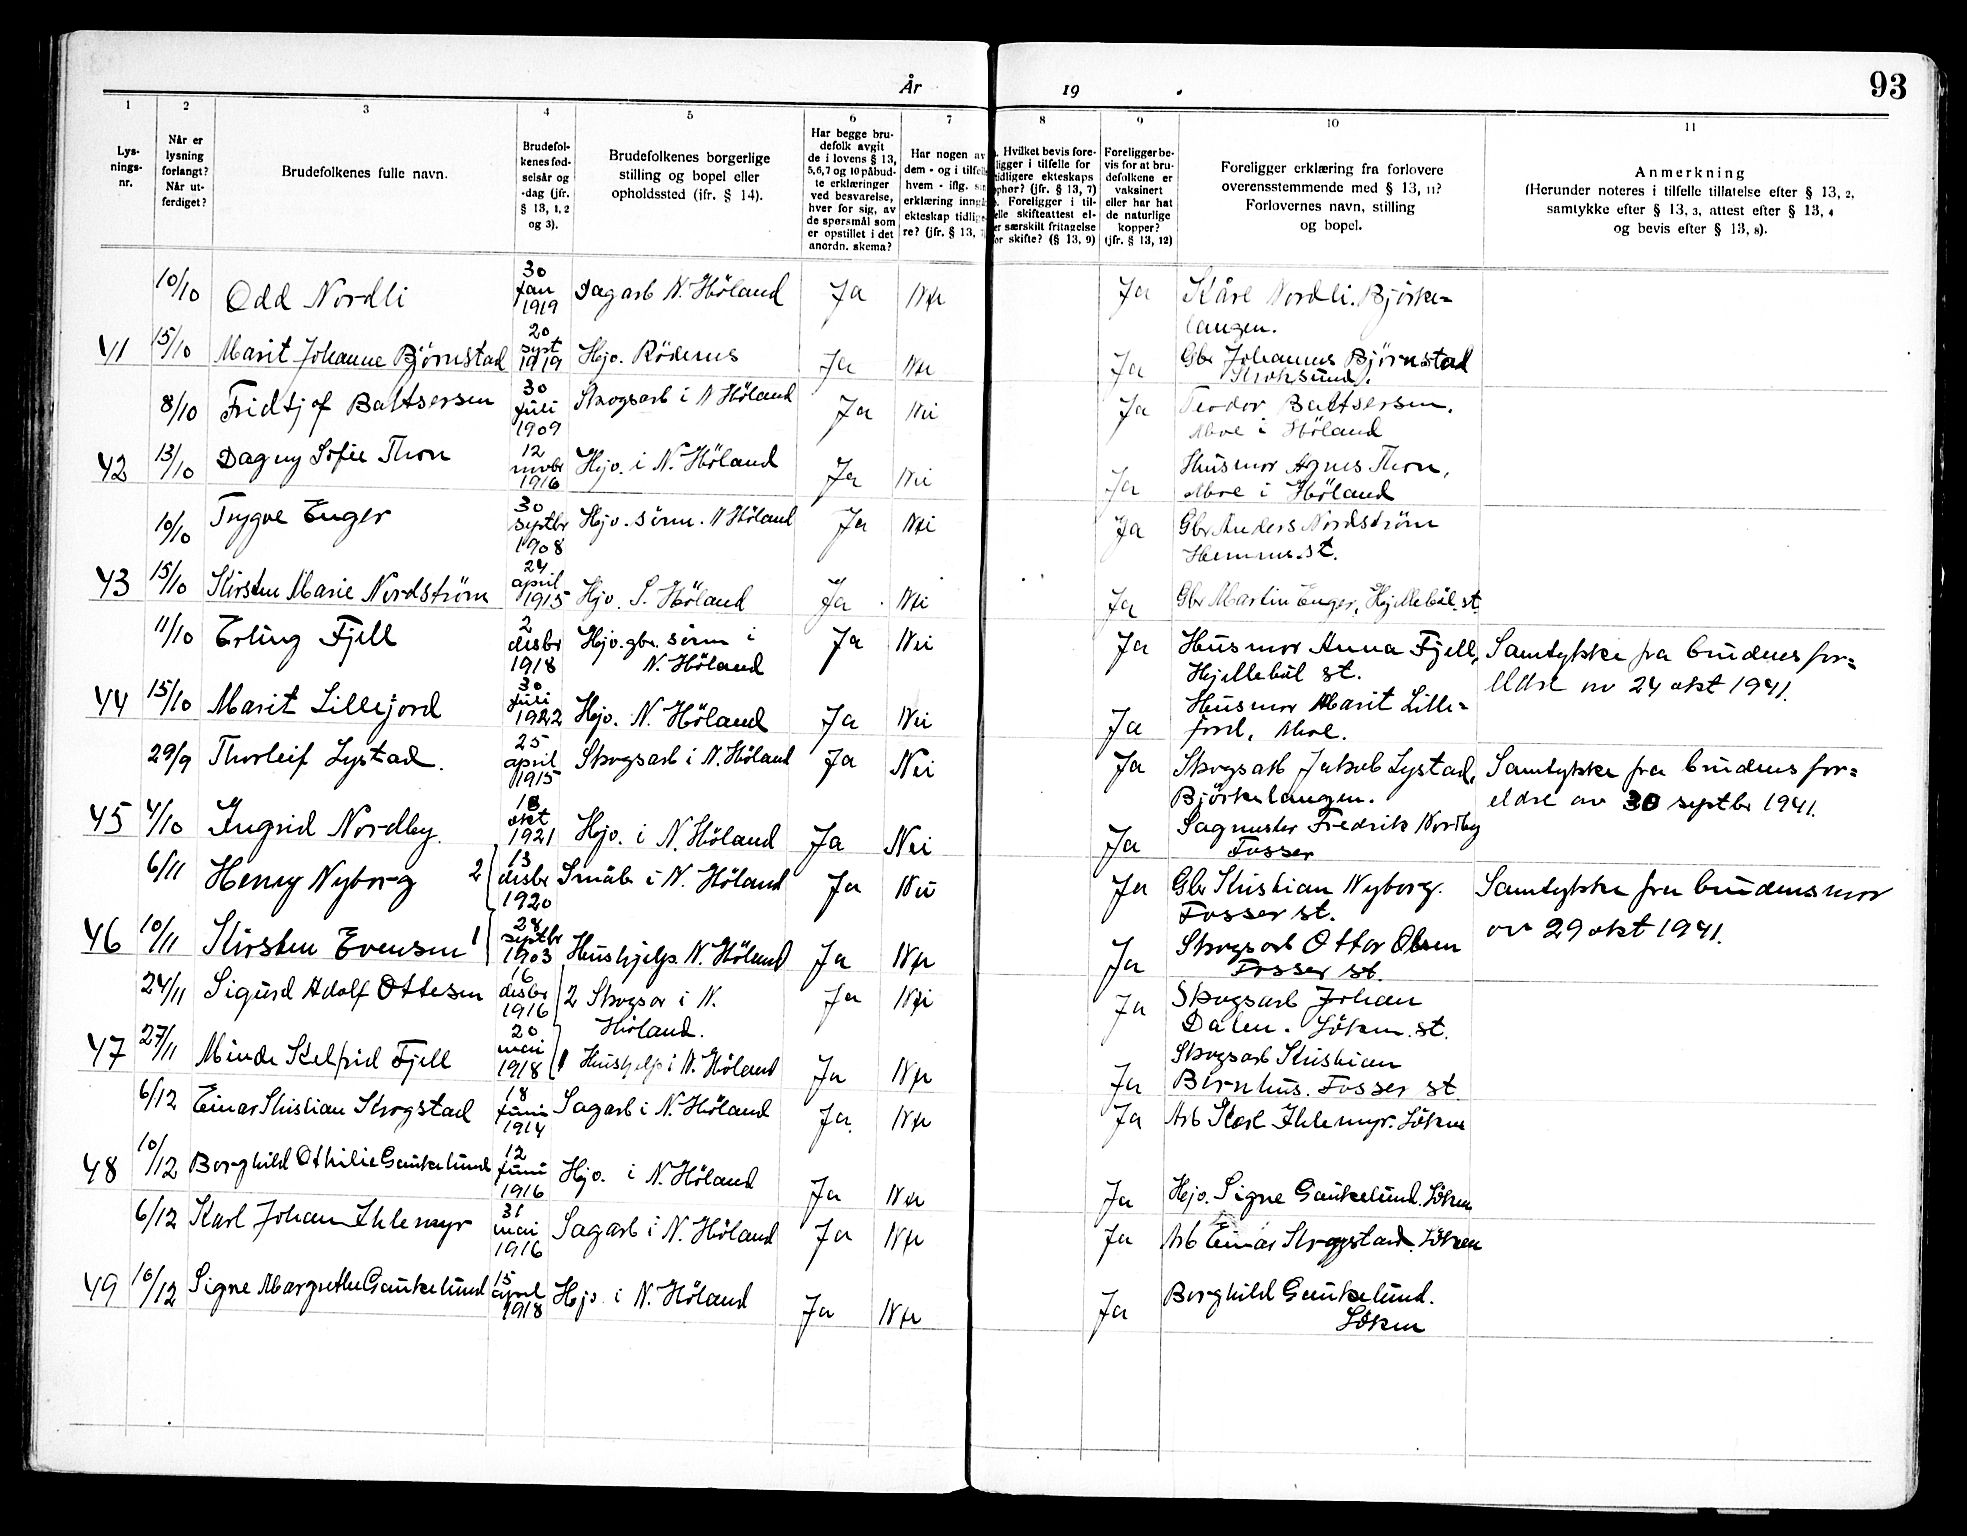 År 19 . 93
1 2 3 4 5 6 7 8 9 10 11
Lys-
nings-
nr.
Når er
lysning
forlangt?
Når ut-
ferdiget?
Brudefolkenes fulle navn.
Brudefol-
kenes fød-
selsår og
-dag (jfr.
§ 13, 1, 2
og 3).
Brudefolkenes borgerlige
stilling og bopel eller
opholdssted (jfr. § 14).
Har begge bru-
defolk avgit
de i lovens § 13,
5, 6, 7 og 10 påbud-
te erklæringer
ved besvarelse,
hver for sig, av
de spørsmål som
er opstillet i det
anordn. skema?
Har nogen av
dem - og i tilfelle
hvem - iflg. sin
erklæring inngått
ekteskap tidlige-
re? (jfr. § 13,
Hvilket bevis fore-
ligger i tilfelle for
tidligere ekteskaps
ophør? (jfr. § 13, 7)
Foreligger i til-
felle skifteattest el-
er særskilt fritagelse
for skifte? (§ 13, 9)
Foreligger be-
vis for at bru-
defolkene er
vaksinert
eller har hat
de naturlige
kopper?
(jfr. § 13, 12)
Foreligger erklæring fra forlovere
overensstemmende med § 13, 11?
Forlovernes navn, stilling
og bopel.
Anmerkning
(Herunder noteres i tilfelle tillatelse efter § 13, 2,
samtykke efter § 13, 3, attest efter § 13, 4
og bevis efter § 13, 8).
10/10 Odd Nordli 30 Jan 1919 Dagarb N. Höland Ja Nei Ja Kåre Nordli. Bjørke=
langen.
41 15/10 Marit Johanne Bjørnstad 20 sept 1919 Hjv. Rödenes Ja Nei Ja Gbr Johannes Bjørnstad
Kroksund.
8/10 Fridtjof Baltsersen 30 Juli 1909 Skogsarb i N Höland Ja Nei Ja Teodor Baltsersen.
Moe i Höland
42 13/10 Dagny Sofie Thon 12 novbr 1916 Hjv. i N. Höland Ja Nei Ja Husmor Agnes Thon,
Moe i Höland
10/10 Trygve Enger 30 septbr 1908 Hjv. sönn. N Höland Ja Nei Ja Gbr Anders Nordström
Hemnes st.
43 15/10 Kirsten Marie Nordström 24 april 1915 Hjv. S. Höland Ja Nei Ja Gbr Martin Enger, Hjellebøl st.
11/10 Erling Fjell 2 desbr 1918 Hjv. gbr. sönn i
N. Höland Ja Nei Ja Husmor Anna Fjell,
Hjellebøl st. Samtykke fra brudens for=
eldre av 24 okt 1941.
44 15/10 Marit Lillejord 30 Juli 1922 Hjv. N. Höland Ja Nei Ja Husmor Marit Lille=
jord, Moe.
29/9 Thorleif Lystad. 25 april 1915 Skogsarb i N. Höland Ja Nei Ja Skogsarb Jakob Lystad,
Bjørkelangen. Samtykke fra brudens for=
eldre av 30 septbr 1941.
45 4/10 Ingrid Nordby. okt 1921 Hjv. i N. Höland Ja Nei Ja Sagmester Fredrik Nordby
Fosser
6/11 Henry Nyborg 2 13 desbr 1920 Småbr i N. Höland Ja Nei Ja Gbr Kristian Nyborg.
Fosser st. Samtykke fra brudens mor
av 29 okt 1941.
46 10/11 Kirsten Evensen 1 septbr 1903 Hushjelp. N. Höland Ja Nei Ja Skogsarb Ottar Olsen
Fosser st.
24/11 Sigurd Adolf Ottesen 16 desbr 1916 2 Skogsar i N.
Höland. Ja Nei Ja Skogsarb Johan
Dalen. Löken st.
47 27/11 Fjell 20 mai 1918 1 Hushjelp i N. Höland Ja Nei Ja Skogsarb Kristian
Bernhus. Fosser st.
6/12 Einar Kristian Skogstad 18 Juni 1914 Sagarb i N. Höland Ja Nei Ja Arb Karl Ihlemyr. Löken
48 10/12 Borghild Othilie Gaukelund 12 Juni 1916 Hjv. i N. Höland Ja Nei Ja Hjv. Signe Gaukelund. Löken
6/12 Karl Johan Ihlemyr 31 mai 1916 Sagarb i N. Höland Ja Nei Ja Arb Einar Skogstad. Löken
49 10/12 Signe Margrethe Gaukelund 15 april 1918 Hjv. i N. Höland Ja Nei Ja Borghild Gaukelund.
Löken